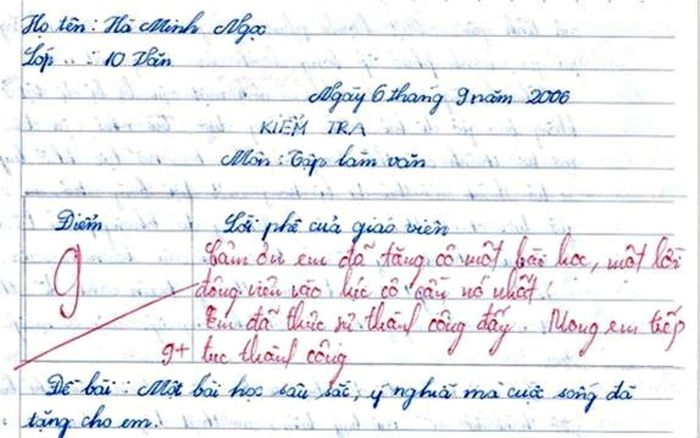 Họ tên : Hà Minh Ngọc
Lớp .. : 10 Văn
Ngày 6 tháng 9 năm 2006
KIỂM TRA
Môn : Tập làm văn
Điểm
Lời phê của giáo viên
9
Cảm ơn em đã tặng cô một bài học, một lời
động viên vào lúc cô cần nó nhất!
Em đã thực sự thành công đấy. Mong em tiếp
9+ tục thành công
Đề bài : Một bài học sâu sắc, ý nghĩa mà cuộc sống đã
tặng cho em.